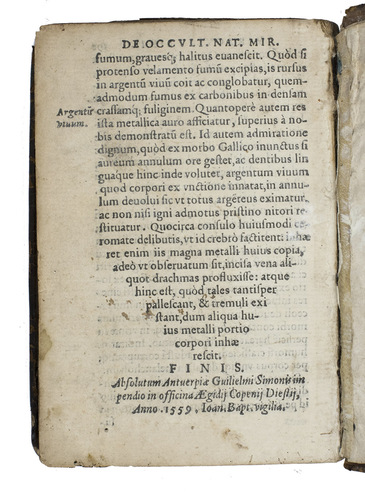 DE OCCVLT. NAT. MIR.
fumum, grauesq́; halitus euanescit. Quòd si
protenso velamento fumũ excipias, is rursus
in argentũ viuũ coit ac conglobatur, quem-
admodum fumus ex carbonibus in densam
Argentũ
viuum.
crassamq́; fuliginem. Quantoperè autem res
ista metallica auro afficiatur, superius à no-
bis demonstratũ est. Id autem admiratione
dignum, quòd ex morbo Gallico inunctus si
aureum annulum ore gestet, ac dentibus lin
guaque hinc inde volutet, argentum viuum
quod corpori ex vnctione innatat, in annu-
lum deuolui sic vt totus argẽteus eximatur,
ac non nisi igni admotus pristino nitori re-
stituatur. Quocirca consulo huiusmodi ce-
romate delibutis, vt id crebrò factitent: inhæ
ret enim iis magna metalli huius copia,
adeò vt obseruatum sit, incisa vena ali-
quot drachmas profluxisse: atque
hinc est, quòd tales tantisper
pallescant, & tremuli exi
stant, dum aliqua hu-
ius metalli portio
corpori inhæ
rescit.
FINIS.
Absolutum Antuerpiæ Guilielmi Simonis im
pendio in officina Ægidij Copenij Diestij,
Anno. 1559. Ioan. Bapt. vigilia.